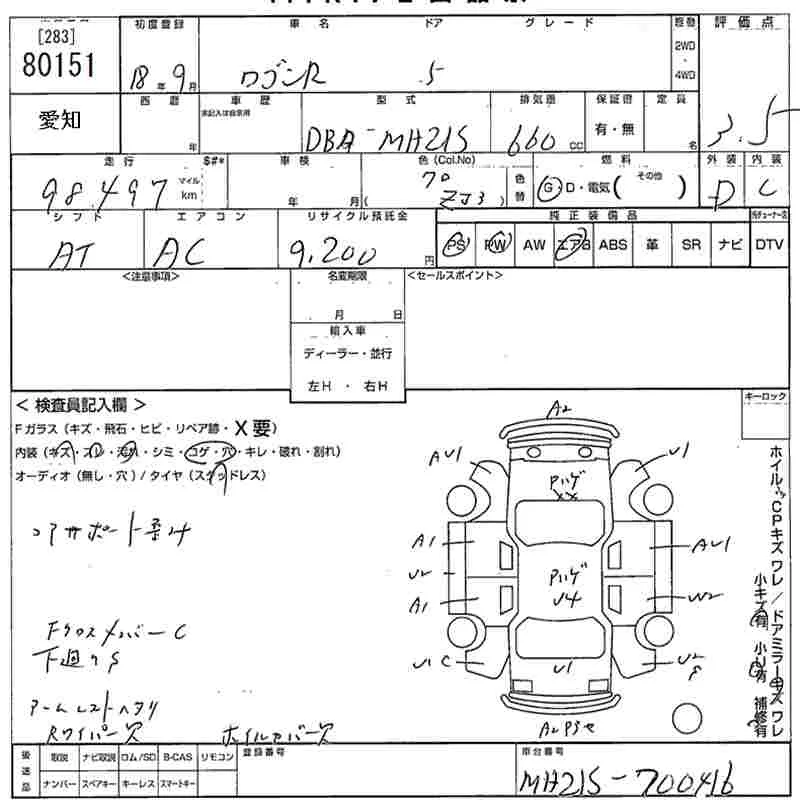 [283]
80151
愛知
初度登録
18年 9月
車名 ドア グレード
ワゴンR 5
駆動
2WD
・
4WD
評価点
3.5
西暦
年
車歴
未記入は自家用
型式
DBA-MH21S
排気量
660 CC
保証書
有・無
定員
名
走行 $#*
98,497
マイル
km
車検
年 月
色(Col.No)
( ZJ3 )
色替
燃料
G・D・電気( その他 )
外装
D
内装
C
シフト
AT
エアコン
AC
リサイクル預託金
9,200円
純正装備品
PS PW AW エアB ABS 革 SR ナビ DTV
<注意事項>
名変期限
月 日
輸入車
ディーラー・並行
左H ・ 右H
<セールスポイント>
キーロック
< 検査員記入欄 >
Fガラス(キズ・飛石・ヒビ・リペア跡・X要)
内装(キズ・スレ・汚れ・シミ・コゲ・穴・キレ・破れ・割れ)
オーディオ(無し・穴)/タイヤ(スタッドレス)
コアサポート歪み
Fクロスメンバー C
下廻り S
アームレストヘタリ
Rワイパー欠 ホイルカバー欠
A2
AU1 U1
Pハゲ
XX
A1 AU1
U2
Pハゲ
U4
A1
U1 C U2
S
U1
ホイル、CPキズ ワレ / ドアミラーキズ ワレ
小キズ有 小U有 補修有
後送品
取説 ナビ取説 ロム/SD B-CAS リモコン
ナンバー スペアキー キーレス スマートキー
登録番号
車台番号
MH21S-700416